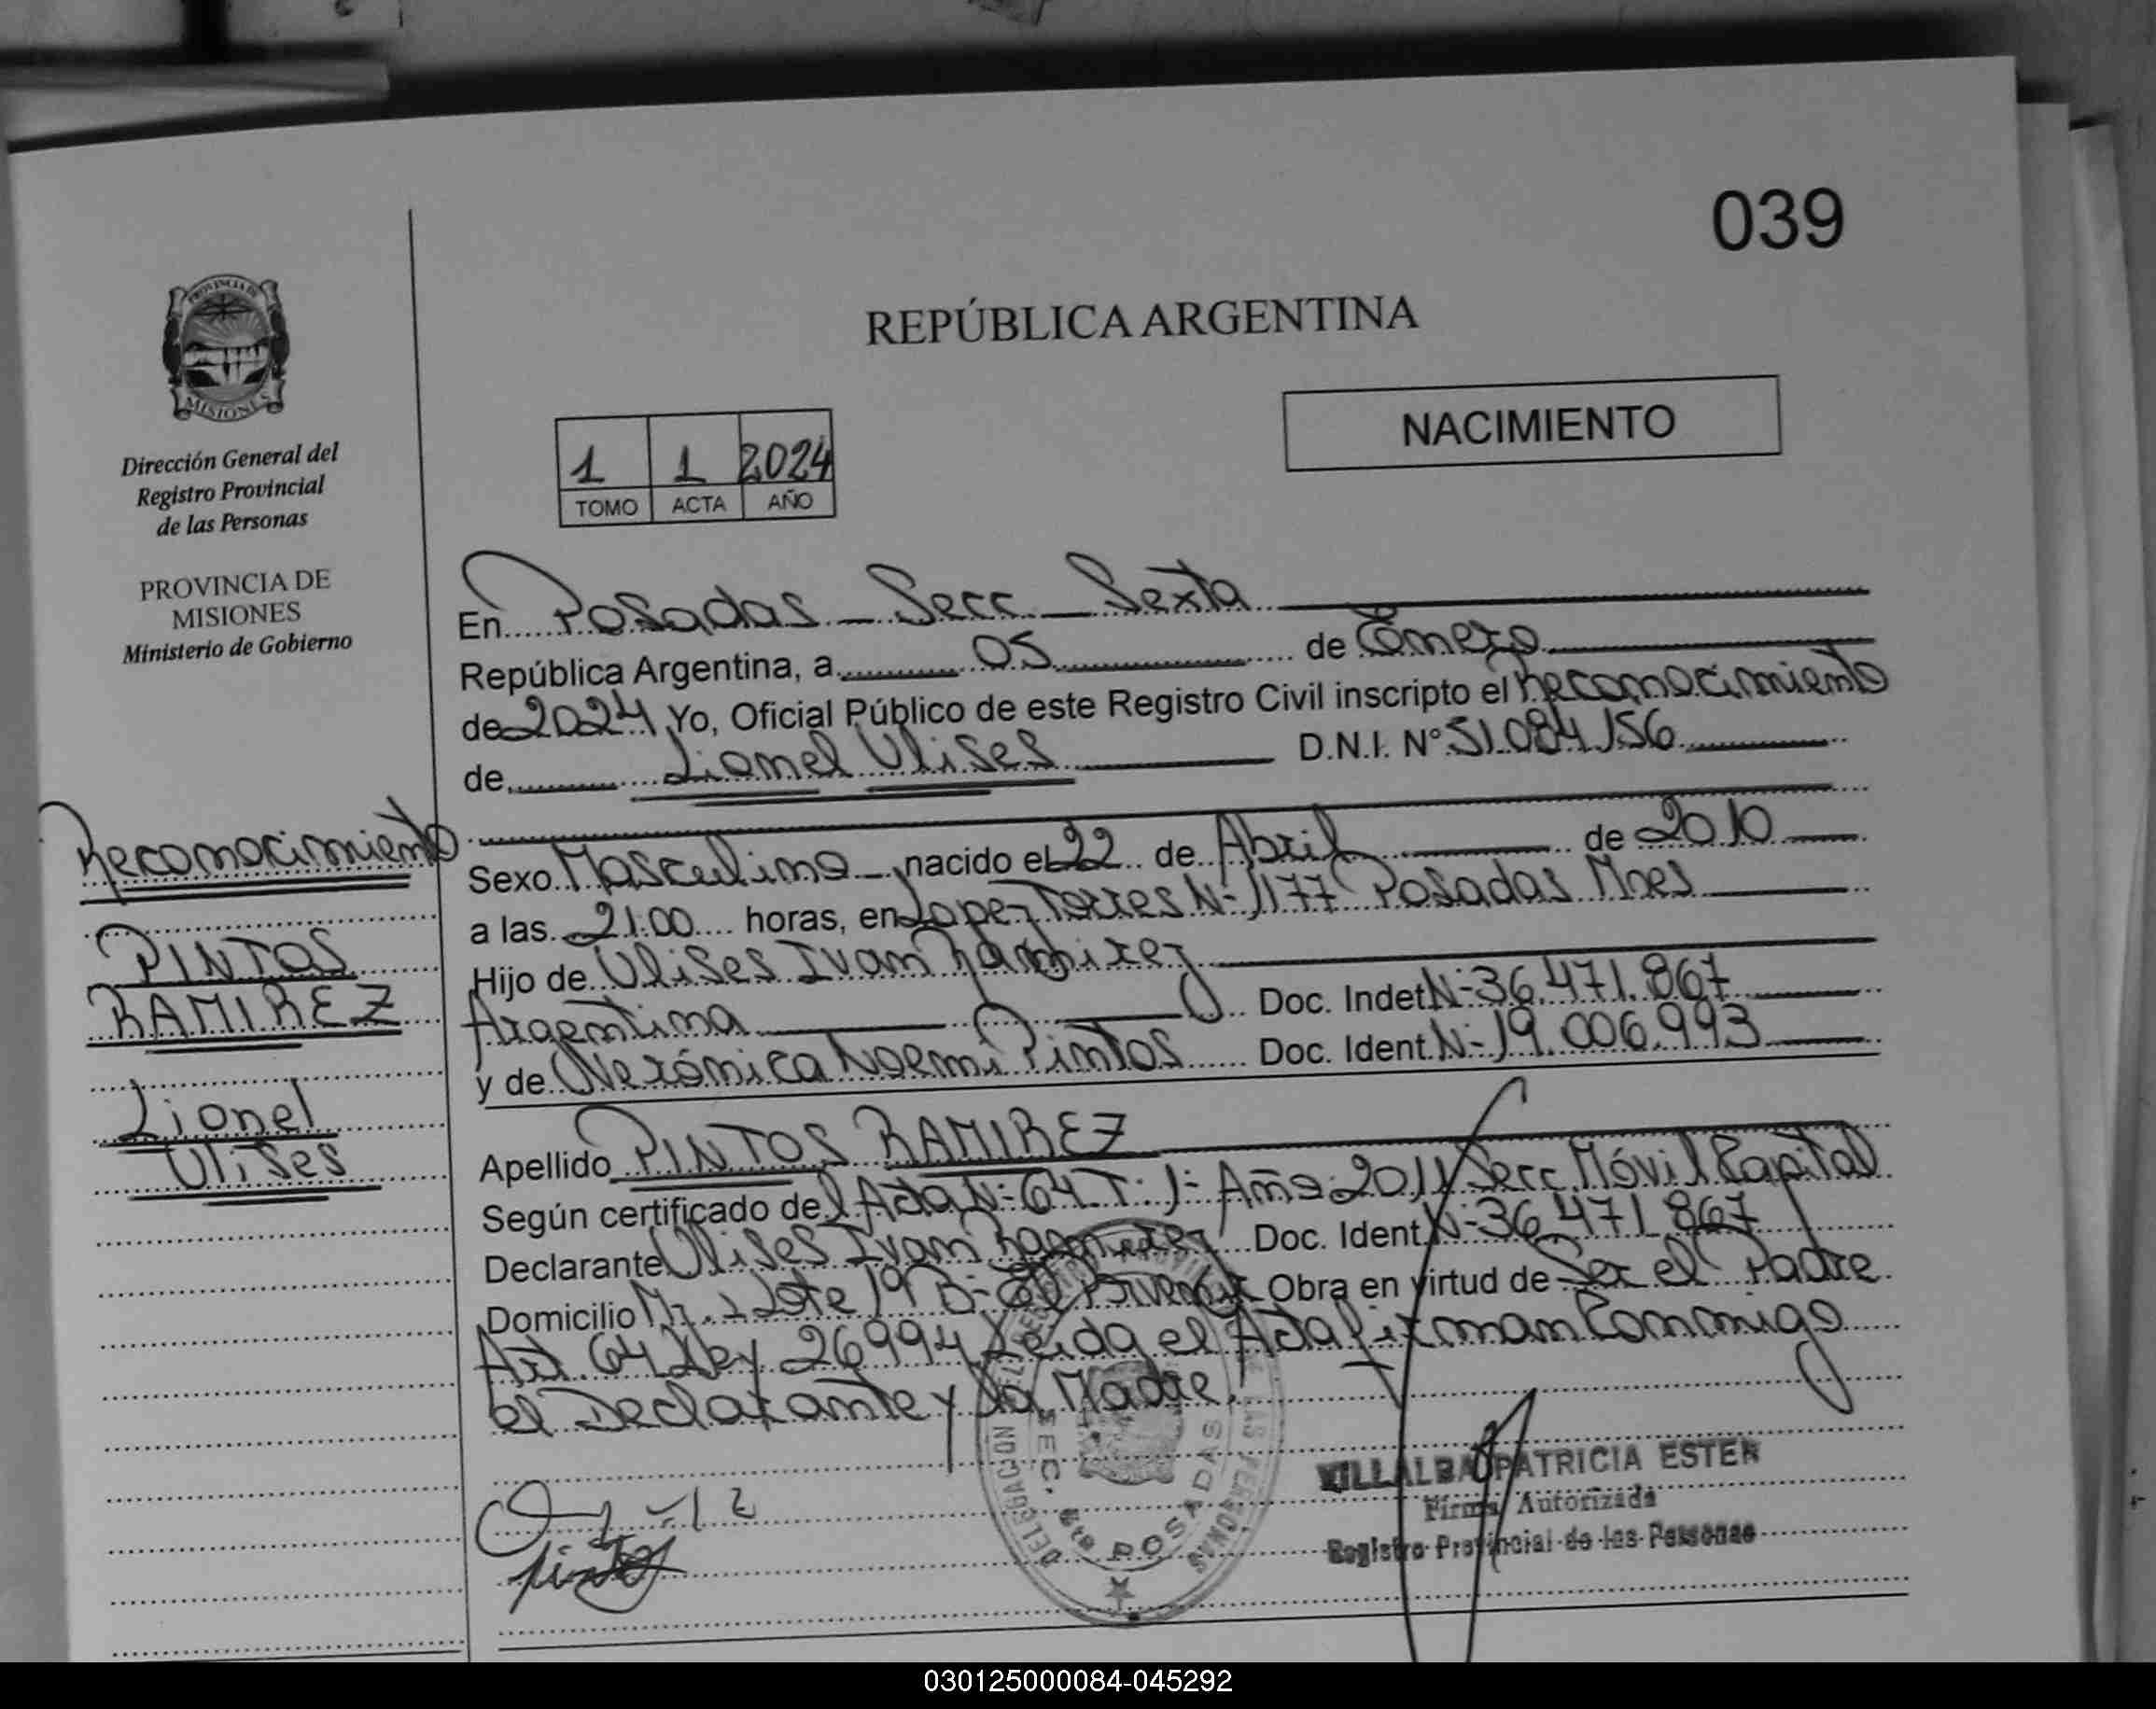 039
REPÚBLICA ARGENTINA
NACIMIENTO
PROVINCIA DE
MISIONES
Dirección General del
Registro Provincial
de las Personas
PROVINCIA DE
MISIONES
Ministerio de Gobierno
Reconocimiento
PINTOS
RAMIREZ
Lionel
Ulises
1 1 2024
TOMO ACTA AÑO
En Posadas - Secc. - Sexta
República Argentina, a 05 de Enero
de 2024 Yo, Oficial Público de este Registro Civil inscripto el Reconocimiento
de Lionel Ulises D.N.I. N° 51.084.156
Sexo Masculino nacido el 22 de Abril de 2010
a las 21:00 horas, en Lopez Torres N- 1177 Posadas Mnes
Hijo de Ulises Ivan Ramirez
Argentina Doc. Indet N- 36.471.867
y de Verónica Noemi Pintos Doc. Ident. N- 19.006.993
Apellido PINTOS RAMIREZ
Según certificado del Acta N- 64 T: 1- Año 2011 Secc Móvil Capital
Declarante Ulises Ivan Ramirez Doc. Ident. N- 36.471.867
Domicilio Mz. Lote 19 B- El Obra en virtud de Ser el Padre
Art. 64 Ley 26994 Leida el Acta firman Conmigo
el Declarante y la Madre.
SEC. 6ta POSADAS
VILLALBA PATRICIA ESTER
Firma Autorizada
Registro Provincial de las Personas
Pintos
030125000084-045292